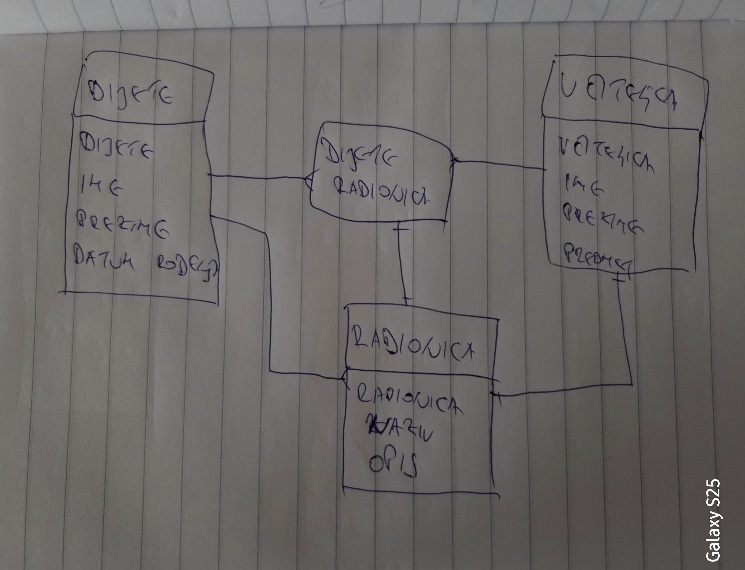 DIJETE
DIJETE
IME
PREZIME
DATUM ROĐENJA
DIJETE
RADIONICA
VODITELJICA
VODITELJICA
IME
PREZIME
PREDMET
RADIONICA
RADIONICA
NAZIV
OPIS
Galaxy S25